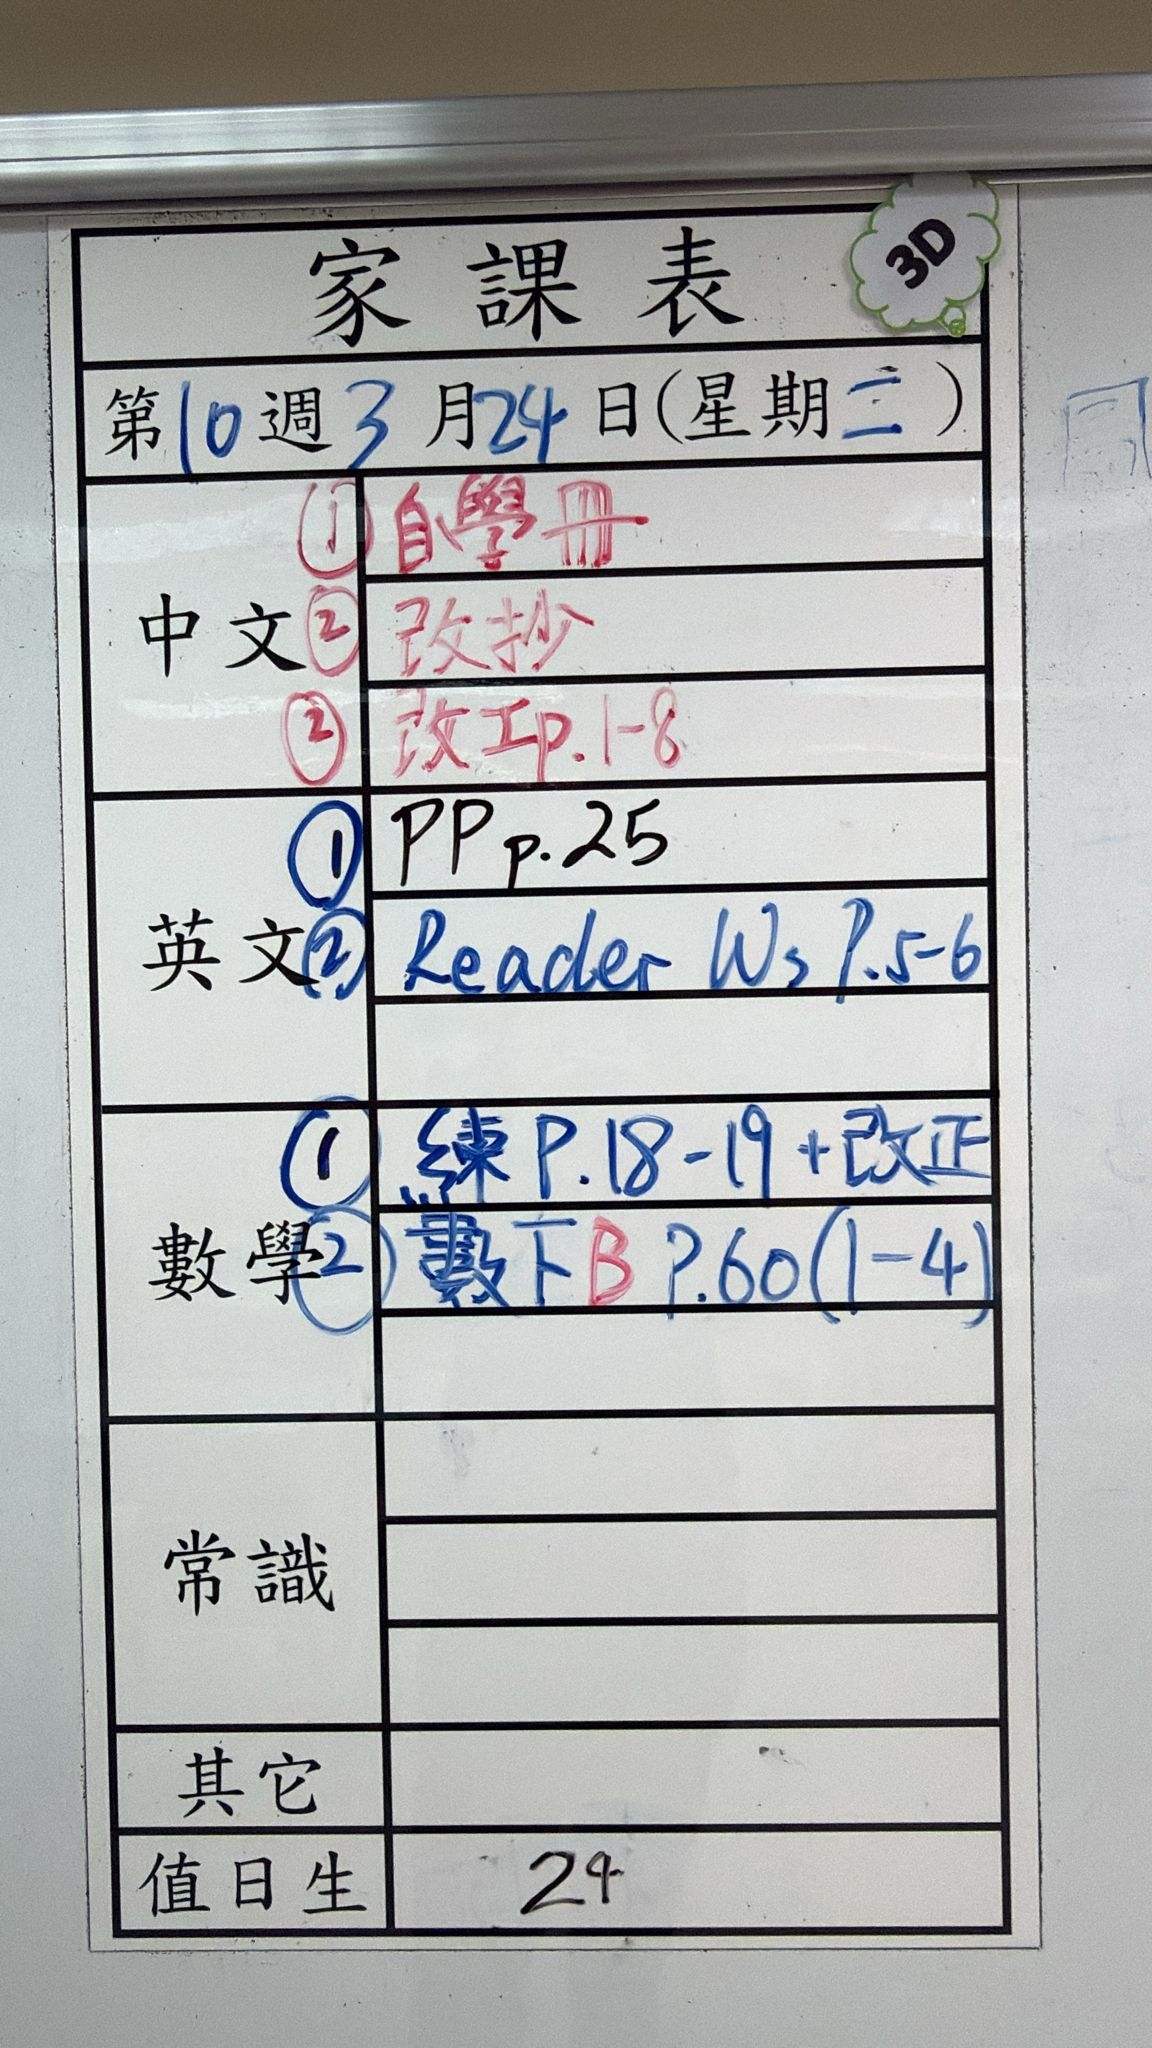 家課表
3D
第10週3月24日(星期二)
中文
① 自學冊
② 改抄
③ 改工p.1-8
英文
① PP p.25
② Reader Ws P.5-6
數學
① 練 P.18-19 + 改正
② 數下B P.60(1-4)
常識
其它
值日生 24